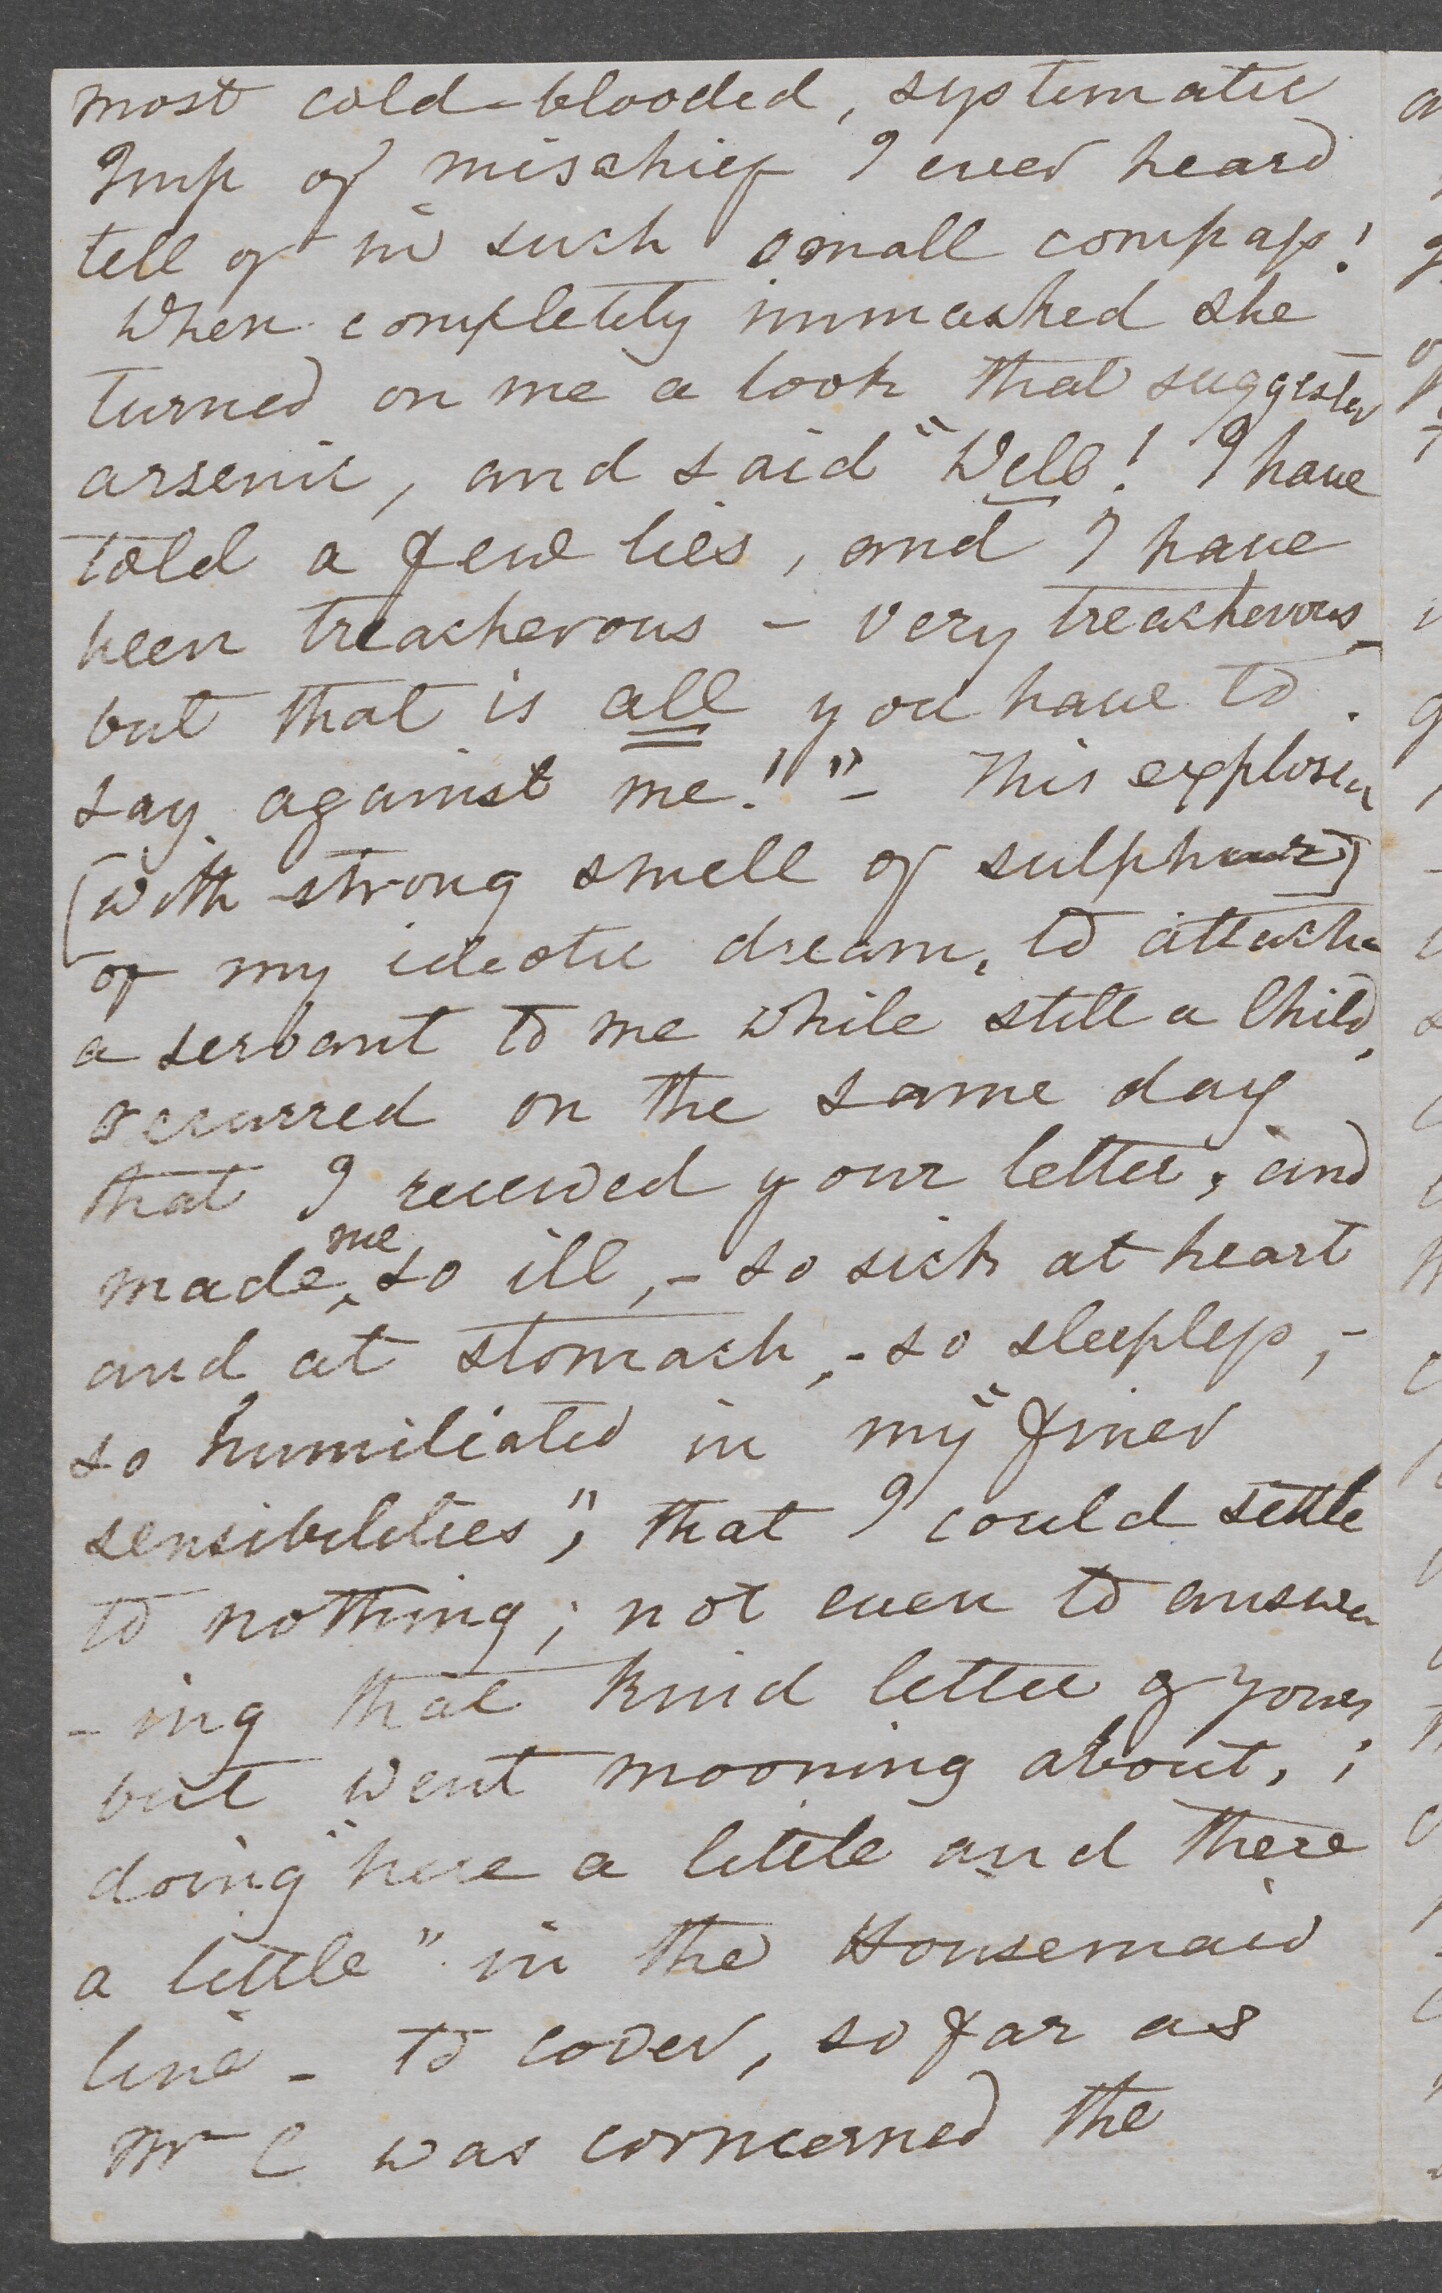 most cold-blooded, systematic
Imp of mischief I ever heard
tell of in such small compass!
When completely unmasked she
turned on me a look that suggested
arsenic, and said "Well! I have
told a few lies, and I have
been treacherous – very treacherous –
but that is all you have to
say against me!" – This explosion
(with strong smell of sulphur)
of my idiotic dream, to attach
a servant to me while still a Child,
occurred on the same day
that I received your letter; and
made me so ill, – so sick at heart
and at stomach, – so sleepless, –
so humiliated in my "finer
sensibilities", that I could settle
to nothing; not even to answer
-ing that kind letter of yours
but went mooning about, ;
doing "here a little and there
a little" in the Housemaid
line – to cover, so far as
Mr C was corncerned the